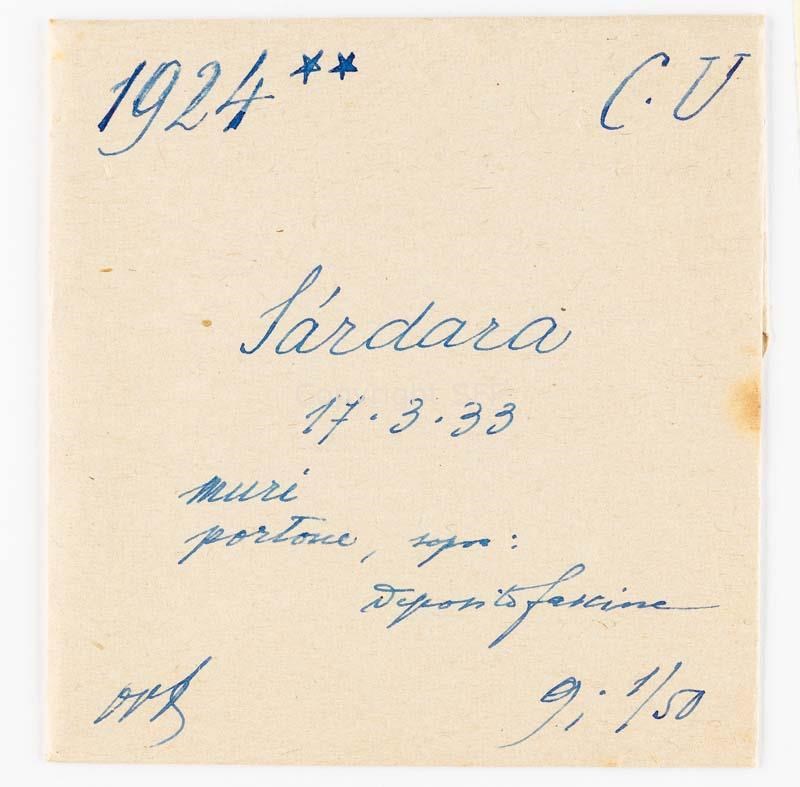 1924** C. U
Sárdara
17. 3. 33
muri
portone, sopra:
Deposito fascine
9; 1/50